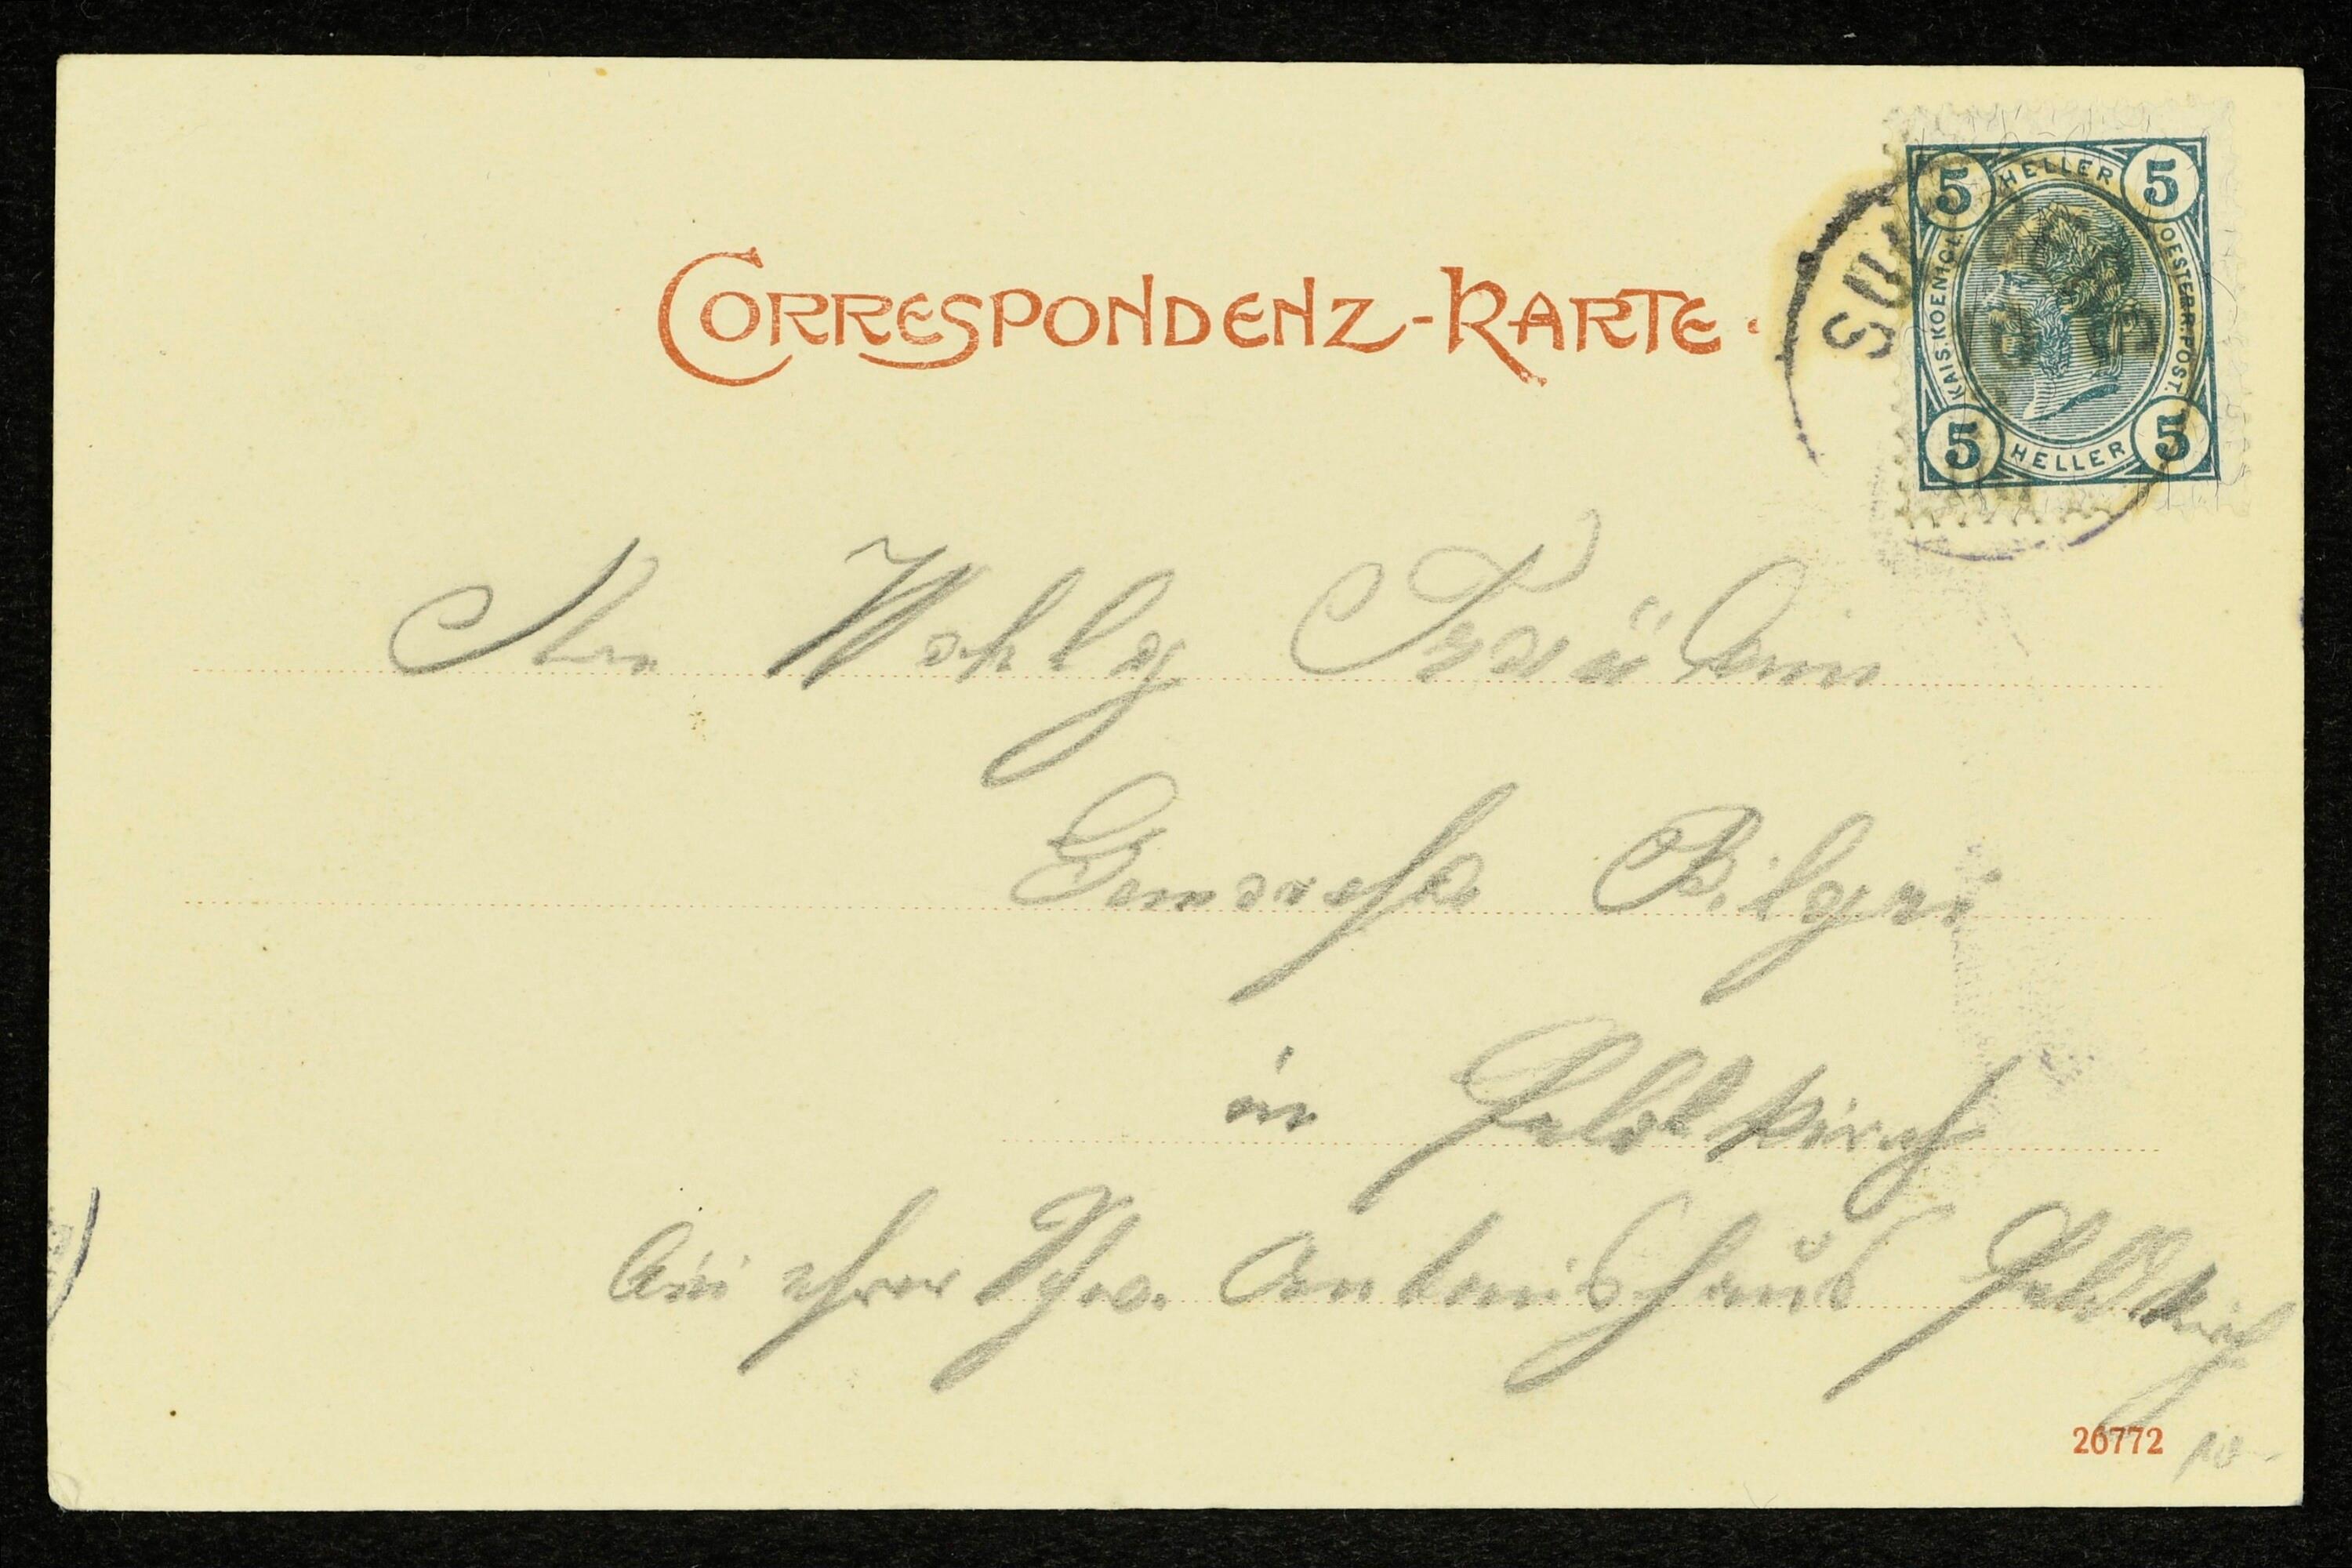 CORRESPONDENZ-KARTE.
HELLER
5 5
KAIS. KOENIGL. OESTERR. POST.
5 5
HELLER
SU
Wohlg Fräulein
Genovefa Bilgeri
in Feldkirch
Antoniushaus Feldkirch
26772
10-